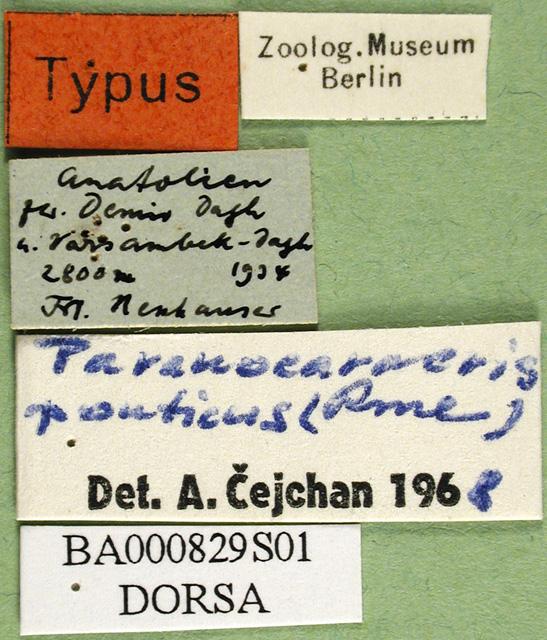 Typus
Zoolog. Museum
Berlin
Anatolien
zw. Demir Dagh
u. Varsambek-Dagh
2800m 1934
Frl. Neuhauser
Paranocarodes
ponticus (Rme)
Det. A. Čejchan 1968
BA000829S01
DORSA